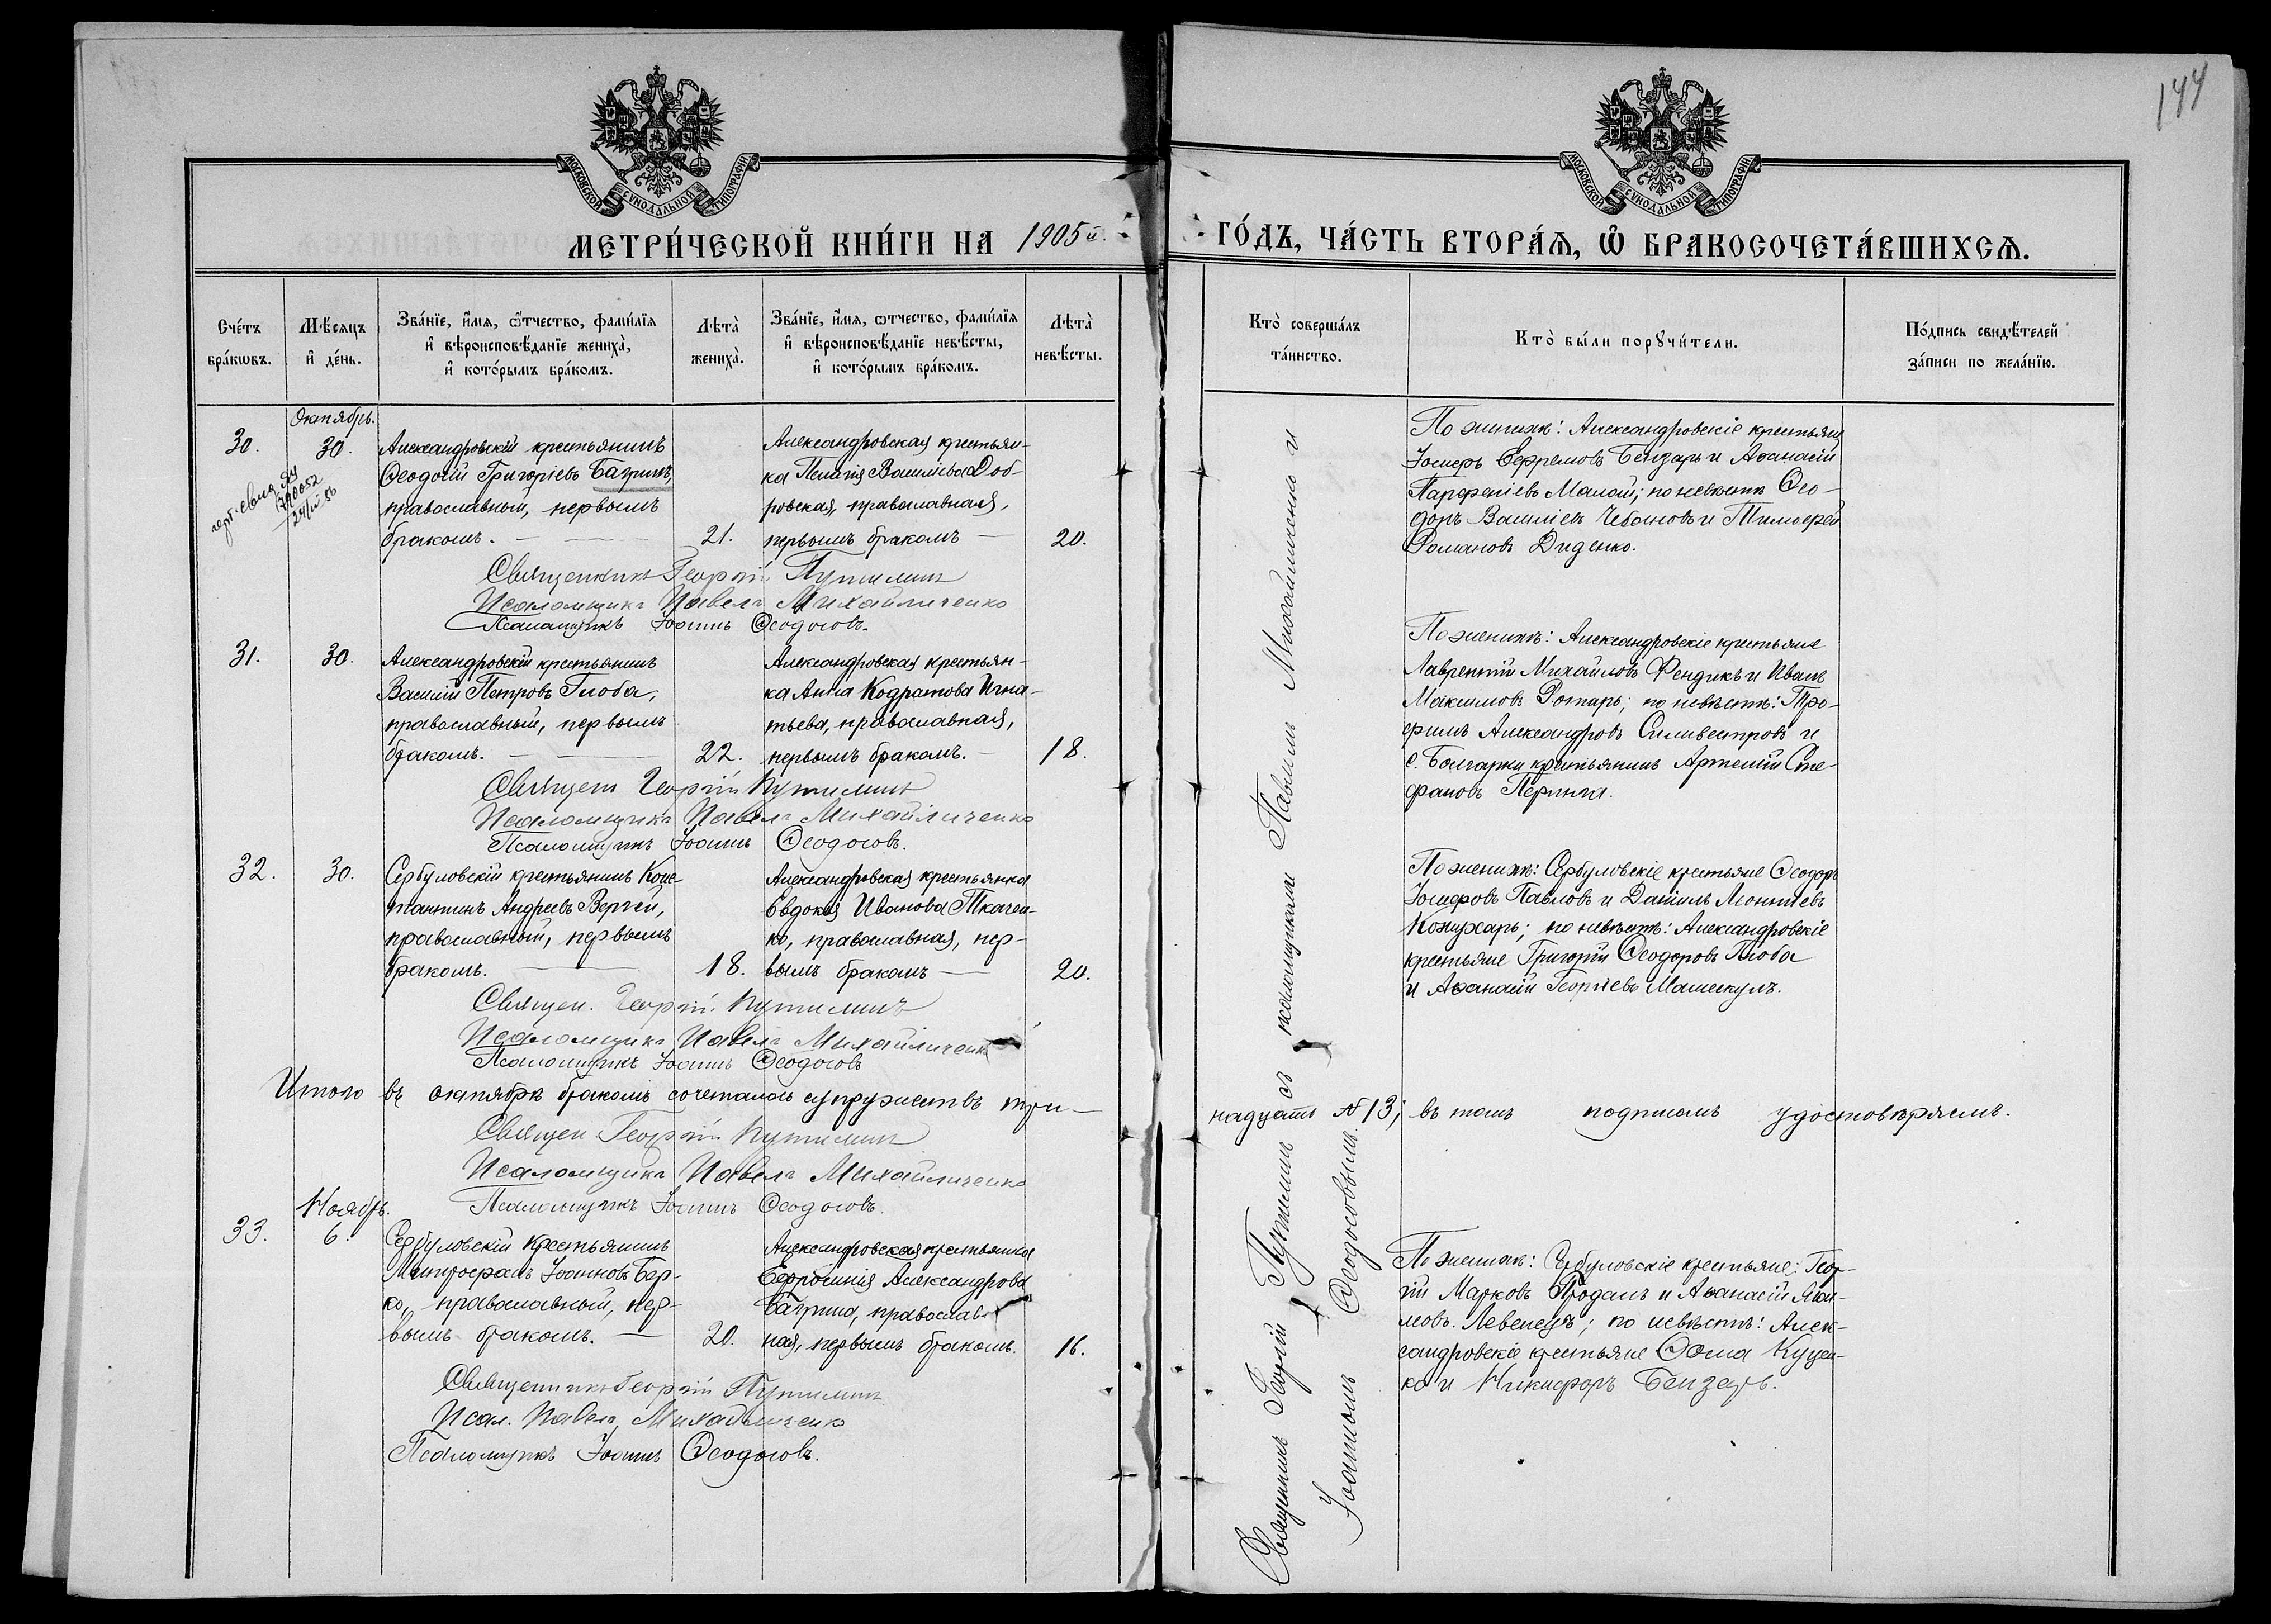 144
МОСКОВСКОЙ СУНОДАЛЬНОЙ ТИПОГРАФІИ
МОСКОВСКОЙ СУНОДАЛЬНОЙ ТИПОГРАФІИ
МЕТРИ́ЧЕСКОЙ КНИ́ГИ НА 1905й.
ГО́ДЪ, ЧА́СТЬ ВТОРА́Ѧ, Ѡ҆ БРАКОСОЧЕТА́ВШИХСѦ.
Сче́тъ бра́кѡвъ.
Мѣ́сѧцъ и҆ де́нь.
Зва́нїе, и҆́мѧ, ѻ҆́тчество, фами́лїѧ
и҆ вѣроисповѣ́данїе жениха̀,
и҆ кото́рымъ бра́комъ.
Лѣта̀ жениха̀.
Зва́нїе, и҆́мѧ, ѻ҆тчество, фами́лїѧ
и҆ вѣроисповѣ́данїе невѣ́сты,
и҆ кото́рымъ бра́комъ.
Лѣта̀ невѣ́сты.
Кто̀ соверша́лъ та́инство.
Кто̀ бы́ли порꙋчи́тели.
По́дпись свидѣ́телей за́писи по жела́нїю.
Октябрь.
30. 30.
Александровскій крестьянинъ
Ѳеодосій Григоріевъ Багринъ,
православный, первымъ
бракомъ. — 21.
Александровская крестьян-
ка Пелагія Васильева Доб-
ровская, православная,
первымъ бракомъ — 20.
По женихѣ: Александровскіе крестьяне
Іосифъ Ефремовъ Бензарь и Аѳанасій
Парфеніевъ Малай; по невѣстѣ Ѳео-
доръ Василіевъ Чебановъ и Тимоѳей
Романовъ Диденко.
Священникъ Георгій Путилинъ
Псаломщикъ Павелъ Михайличенко
Псаломщикъ Іоаннъ Ѳеодосовъ.
31. 30.
Александровскій крестьянинъ
Василій Петровъ Глоба,
православный, первымъ
бракомъ. — 22.
Александровская крестьян-
ка Анна Кодратова Игна-
тьева, православная,
первымъ бракомъ. — 18.
По женихѣ: Александровскіе крестьяне
Лаврентій Михайловъ Фендикъ и Иванъ
Максимовъ Ротарь; по невѣстѣ: Тро-
фимъ Александровъ Силивестровъ и
с. Болгарки крестьянинъ Артемій Сте-
фановъ
Священ Георгій Путилинъ
Псаломщикъ Павелъ Михайличенко
Псаломщикъ Іоаннъ Ѳеодосовъ.
32. 30.
Сербуловскій крестьянинъ Конс-
тантинъ Андреевъ Вергей,
православный, первымъ
бракомъ. — 18.
Александровская крестьянка
Евдокія Иванова Ткачен-
ко, православная, пер-
вымъ бракомъ — 20.
По женихѣ: Сербуловскіе крестьяне Ѳеодоръ
Іосифовъ Павловъ и Даніилъ Леонтіевъ
Кожухарь; по невѣстѣ: Александровскіе
крестьяне Григорій Ѳеодоровъ Глоба
и Аѳанасій Георгіевъ
Священ. Георгій Путилинъ
Псаломщикъ Павелъ Михайличенко
Псаломщикъ Іоаннъ Ѳеодосовъ
Итого въ октябрѣ бракомъ сочеталось супружествъ три-
надцать № 13; въ томъ подписомъ удостовѣряемъ.
Священ Георгій Путилинъ
Псаломщикъ Павелъ Михайличенко
Псаломщикъ Іоаннъ Ѳеодосовъ.
Ноябрь.
33. 6.
Сербуловскій крестьянинъ
Митрофанъ Іоанновъ Бер-
ко, православный, пер-
вымъ бракомъ. — 20.
Александровская крестьянка
Евфросинія Александрова
Багрина, православ-
ная, первымъ бракомъ. 16.
По женихѣ: Сербуловскіе крестьяне: Геор-
гій Марковъ Проданъ и Аѳанасій
Левенецъ; по невѣстѣ: Алек-
сандровскіе крестьяне Ѳома Куцен-
ко и Никифоръ Бензарь.
Священникъ Георгій Путилинъ
Псал. Павелъ Михайличенко
Псаломщикъ Іоаннъ Ѳеодосовъ.
Священникъ Георгій Путилинъ съ псаломщиками Павломъ Михайличенко и
Іоанномъ Ѳеодосовымъ.